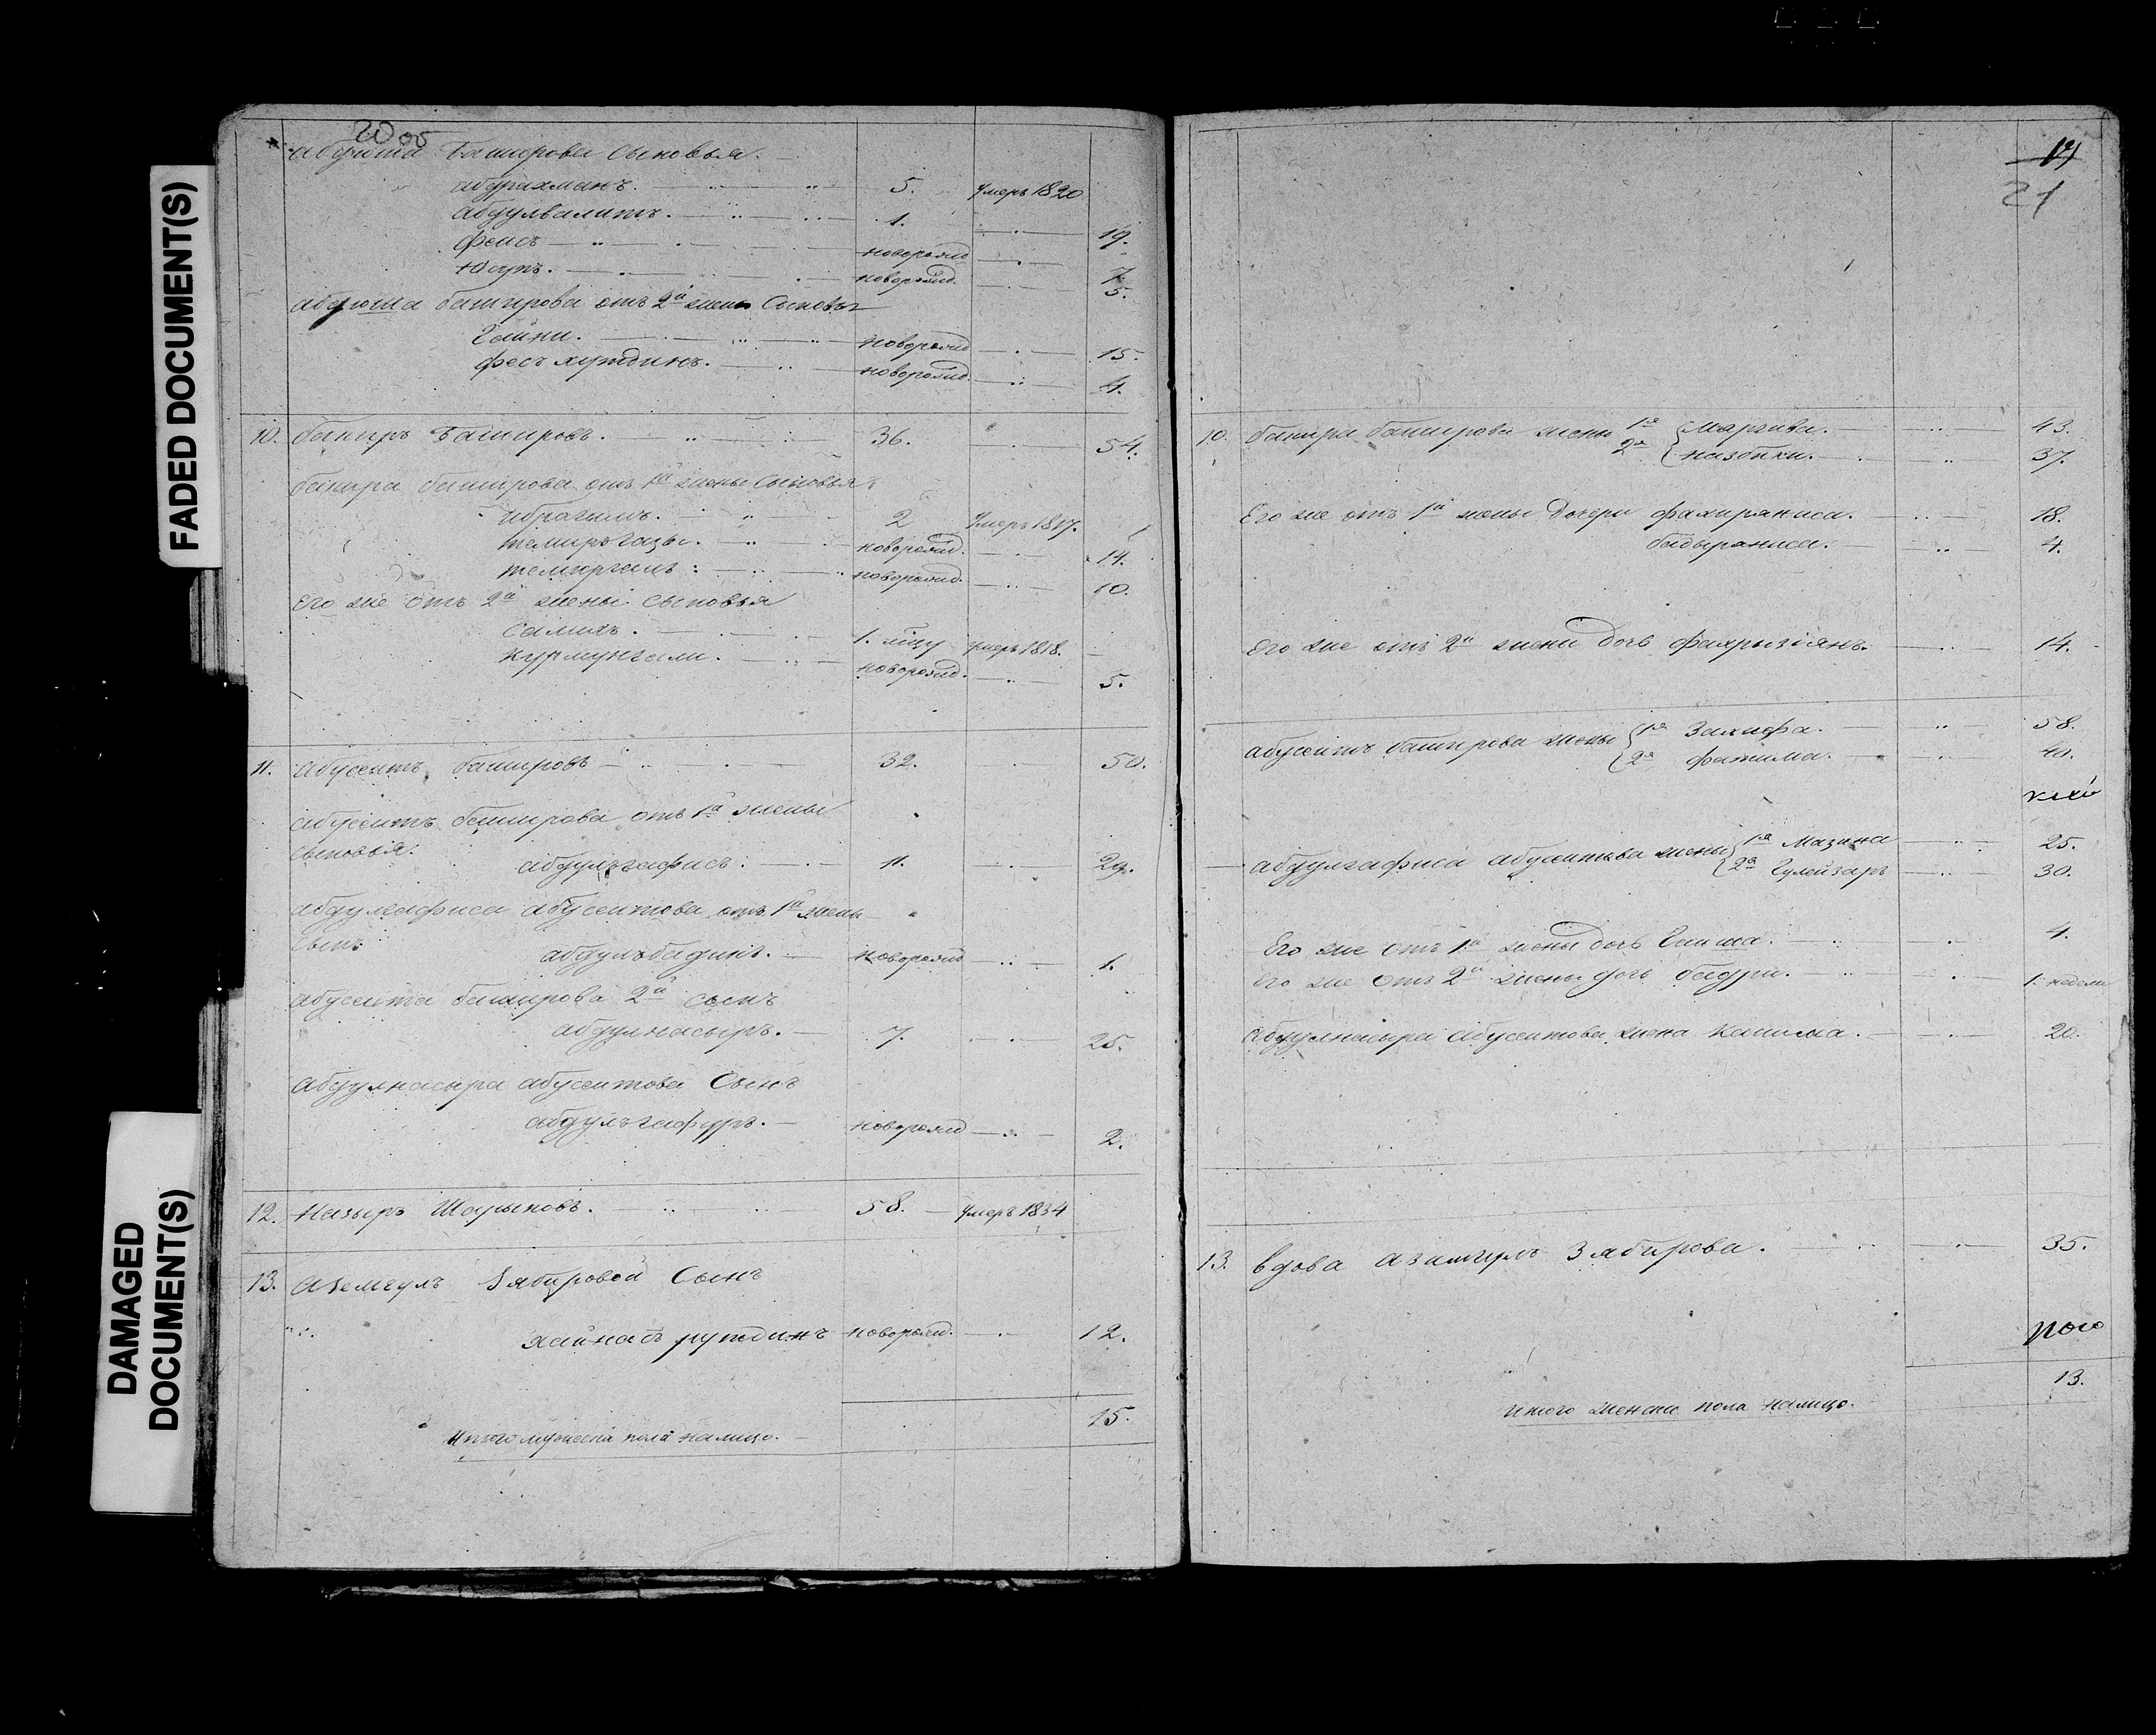 FADED DOCUMENT(S)
DAMAGED DOCUMENT(S)
20 об
Баширова сыновья.
абдрахманъ. 5. умеръ 1820
абдулвалитъ. 1. 19.
феисъ новорожд 7.
Юсупъ. новорожд. 5.
абдюша баширова отъ 2й жены Сыновья
Гайни. новорожд 15.
фесъхутдинъ. новорожд. 4.
10. бакиръ Башировъ. 36. 54.
бакира баширова отъ 1й жены Сыновья
ибрагимъ. 2 умеръ 1817.
темиръгазы. новорожд. 14.
новорожд. 10.
Его же отъ 2й жены сыновья
Салихъ. 1. мцу умеръ 1818.
курмангали. новорожд. 5.
11. абусеитъ башировъ 32. 50.
абусеитъ баширова отъ 1й жены
сыновья.
абдулъгафисъ. 11. 29.
абдулгафиса абусеитова отъ 1й жены
сынъ
новорожд 1.
абусеита баширова 2й сынъ
абдулнасыръ. 7. 25.
абдулнасыра абусеитова Сынъ
абдулъгафуръ. новорожд 2.
12. Назыръ Шарыповъ. 58. умеръ 1834
13. Аземгулъ Зябировой Сынъ
новорожд. 12.
Итого мужеска пола налицо. 15.
21
10. бакира баширова жены 1я Маргива. 43.
2я назбики. 37.
Его же отъ 1й жены дочери фахиряниса. 18.
бадыраниса. 4.
Его же отъ 2й жены дочь 14.
абусеитъ баширова жены 1я Захифа. 58.
2я фатима. 40.
абдулгафиса абусеитова жены 1я Мазина 25.
2я Гулейзаръ 30.
Его же отъ 1й жены дочь Гаиша. 4.
Его же отъ 2й жены дочь бадри. 1. недели
абдулнасыра абусеитова жена Калима. 20.
13. вдова азимгулъ Зябирова. 35.
итого женска пола налицо. 13.